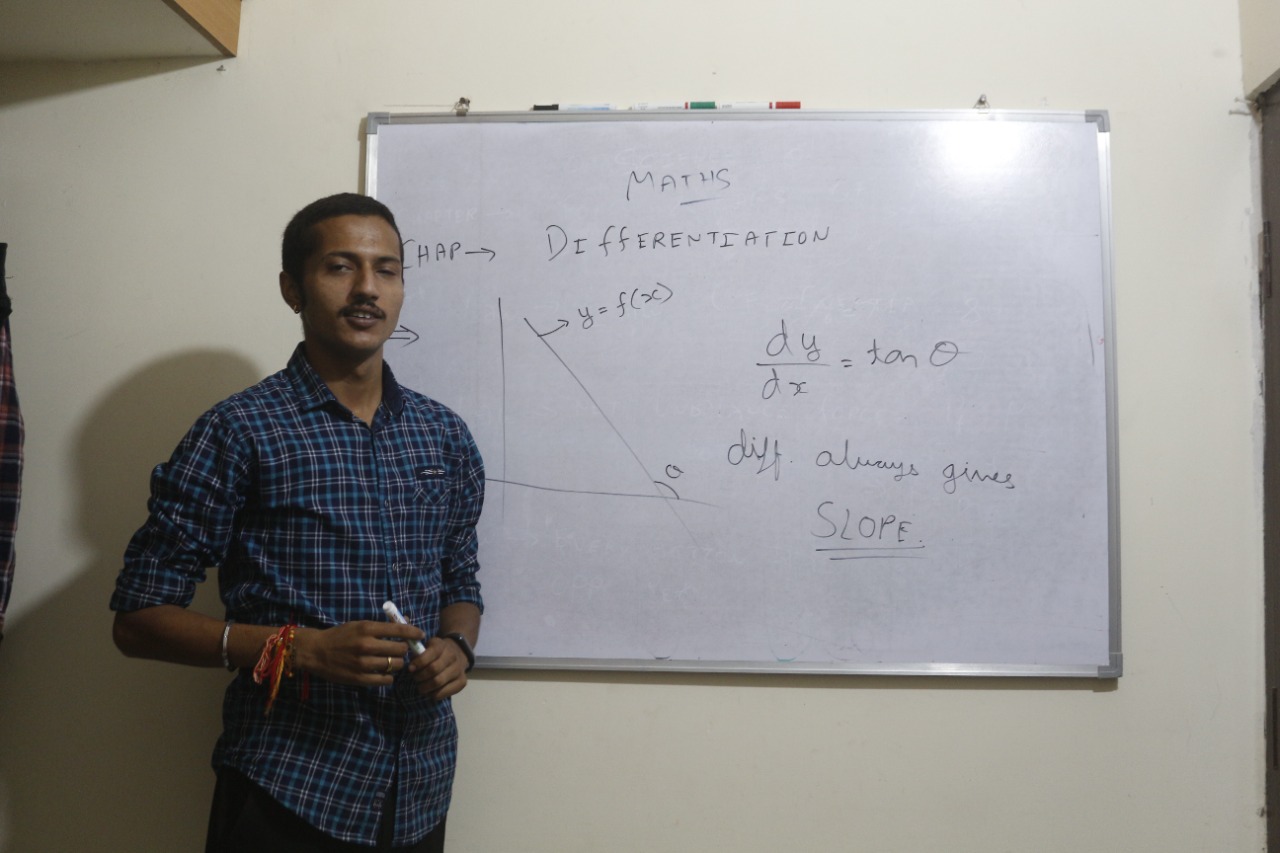 MATHS
CHAP → DIFFERENTIATION
⇒
y = f(x)
dy/dx = tan θ
θ
diff. always gives
SLOPE.